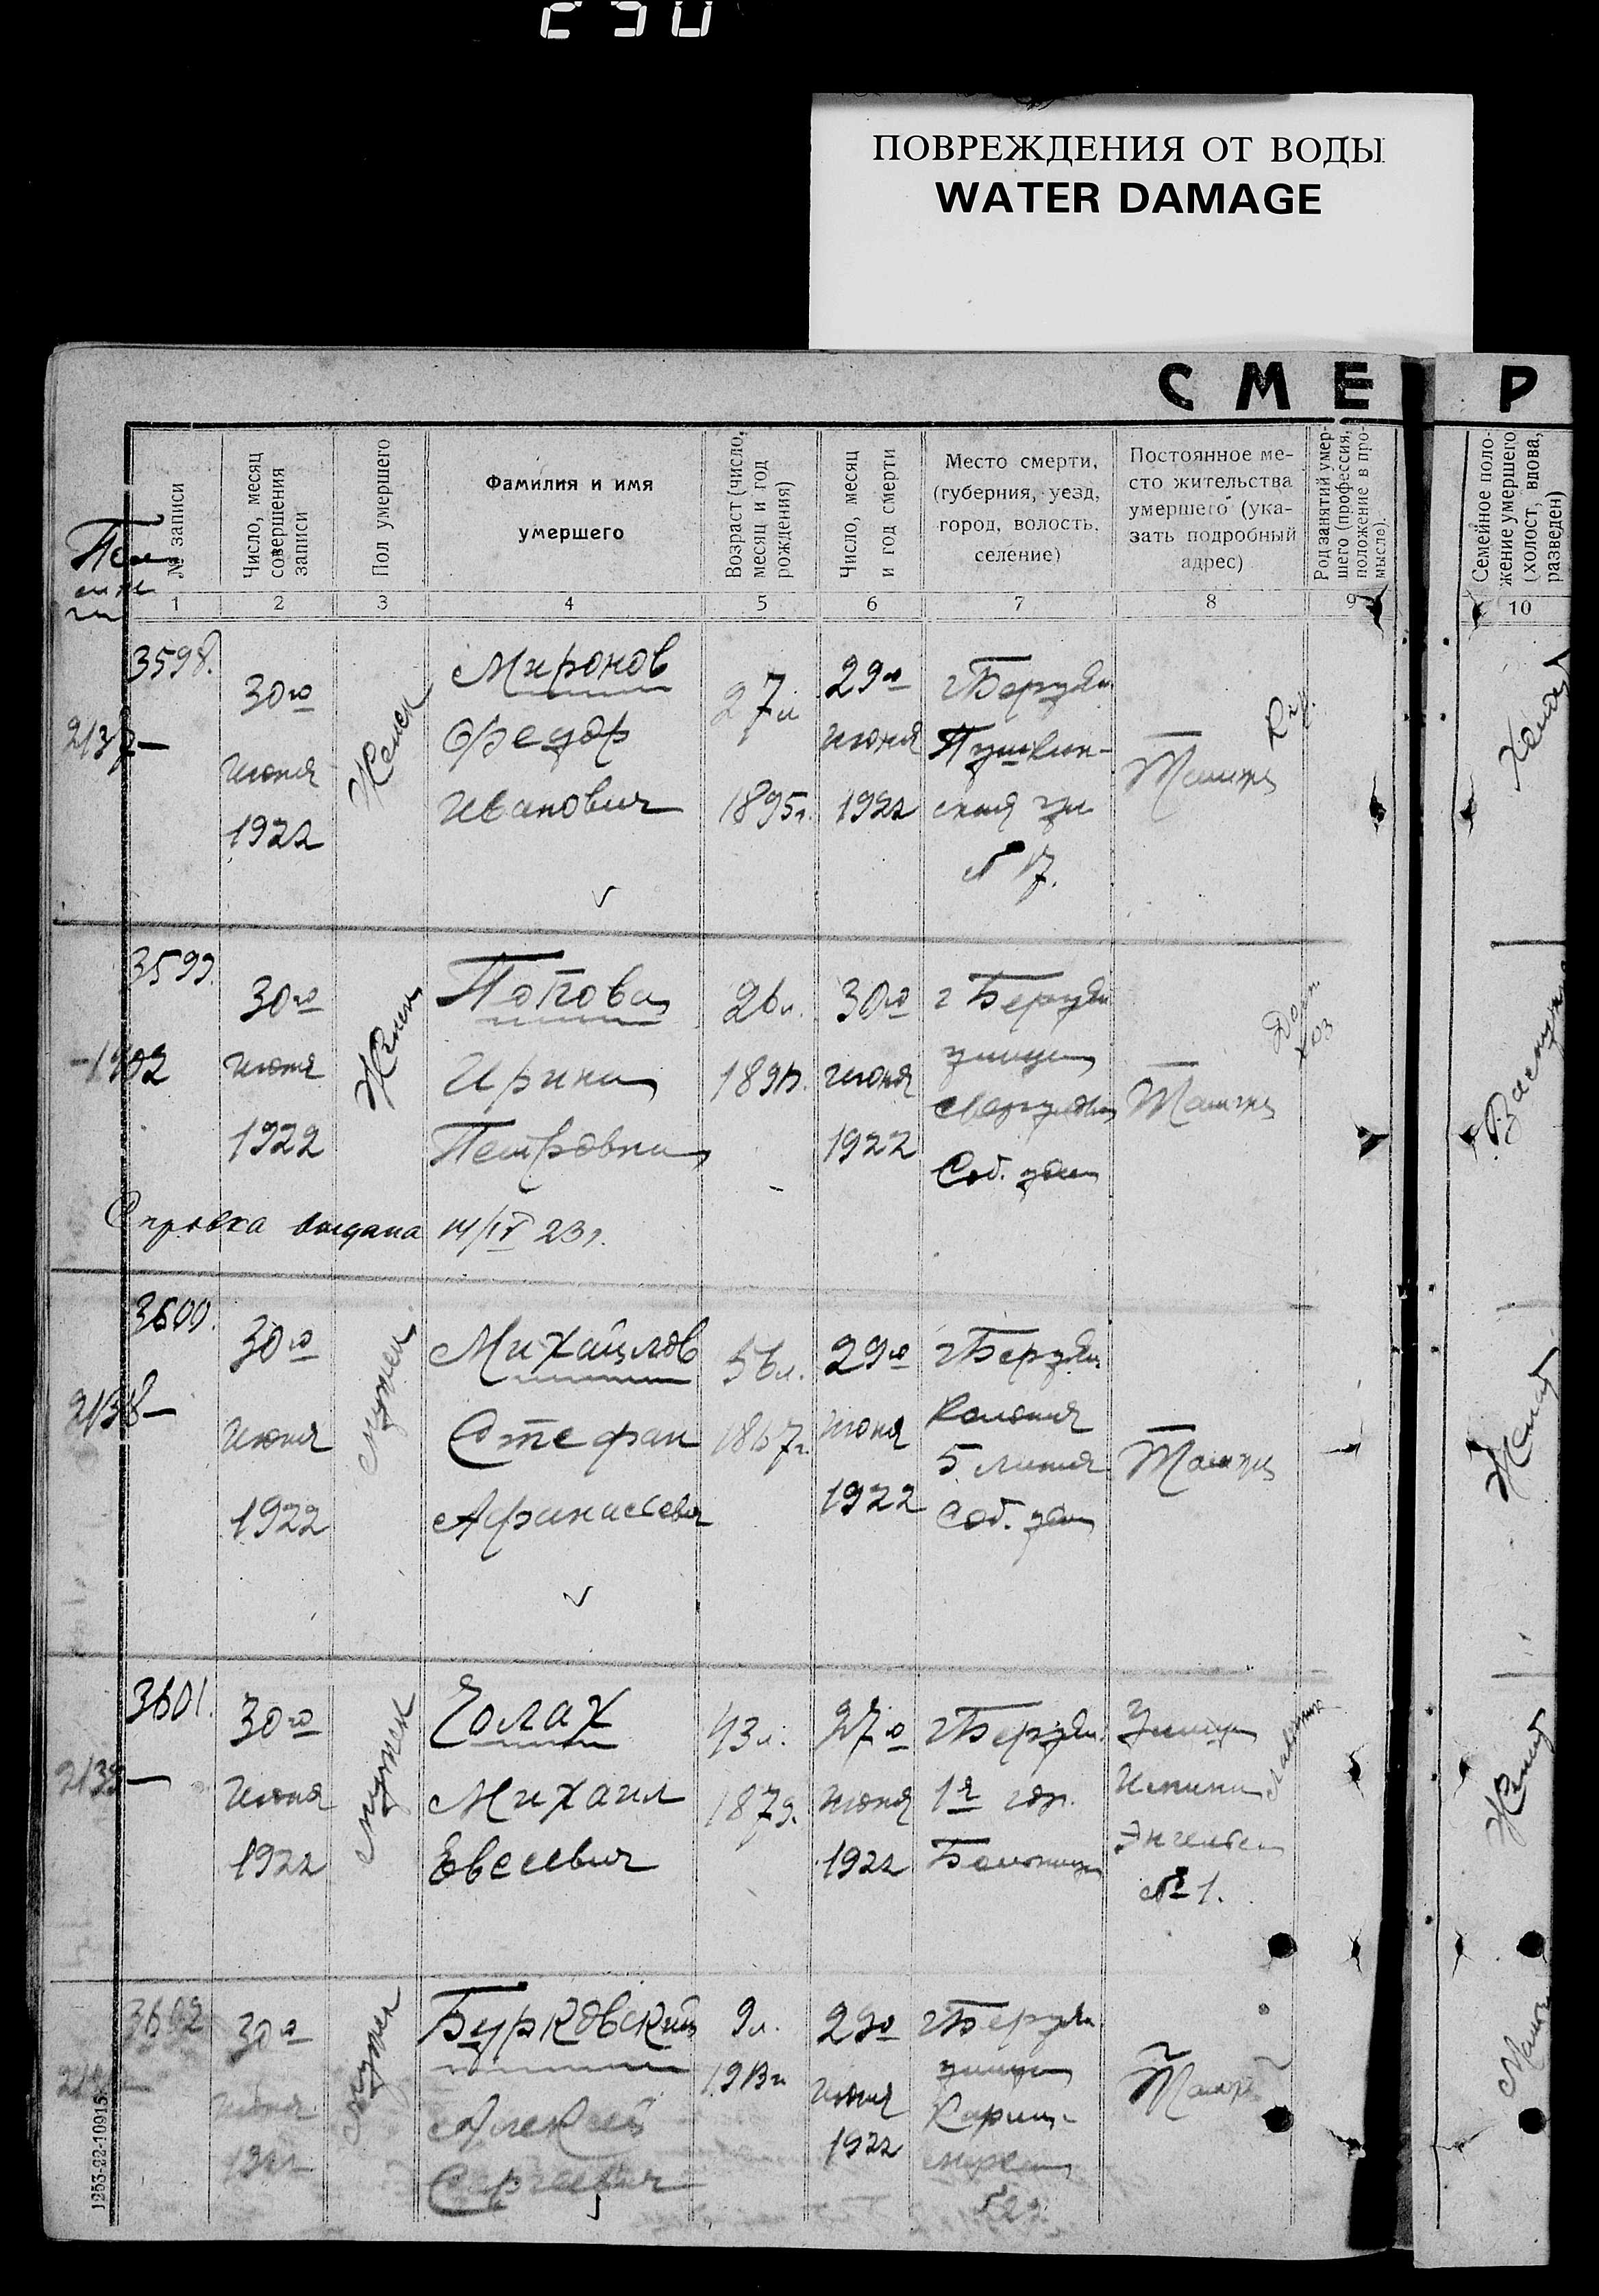 ПОВРЕЖДЕНИЯ ОТ ВОДЫ
WATER DAMAGE
СМЕР
№ записи
Число, месяц совершения записи
Пол умершего
Фамилия и имя
умершего
Возраст (число, месяц и год рождения)
Число, месяц и год смерти
Место смерти,
(губерния, уезд,
город, волость,
селение)
Постоянное ме-
сто жительства
умершего (ука-
зать подробный
адрес)
Род занятий умер-
шего (профессия,
положение в про-
мысле).
Семейное поло-
жение умершего
(холост, вдова,
разведен)
1 2 3 4 5 6 7 8 9 10
3598.
2137—
30го
июня
1922
Миронов
Федор
Иванович
27л
1895г.
29го
июня
1922
г Бердян
Пушкин-
ская ул
№ 17.
Там же
3599.
30го
июня
1922
Женск
Попова
Ирина
Петровна
26л.
30го
июня
1922
г Бердян
улица
Соб. дом
Там же
Справка выдана 14/IV 23г.
3600.
2138—
30го
июня
1922
мужск
Михайлов
Стефан
Афанасьев
29го
июня
1922
г Бердян
Колония
5 линия
Соб. дом
Там же
Женат
3601.
2139—
30го
июня
1922
мужск
Голах
Михаил
Евсеевич
43л.
1879.
27го
июня
1922
г Бердян.
1я гор.
Больница
Улица
Энгельса
№ 1.
Женат
3602
30го
июня
1922
мужск
Бурковский
Алексей
Сергеевич
9л.
1913г
29го
июня
1922
г Бердян
улица
Там же
1253-22-10915